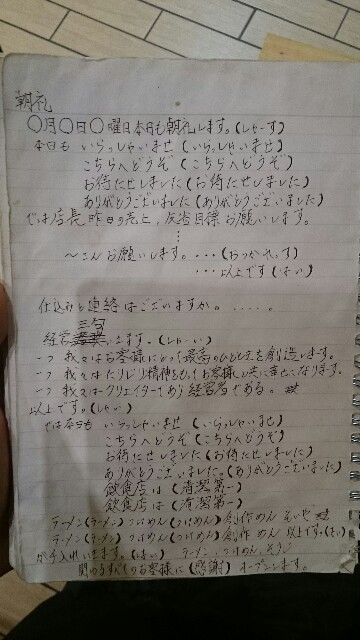 朝礼
〇月〇日〇曜日本日も朝礼します。(しゃーす)
本日も いらっしゃいませ (いらっしゃいませ)
こちらへどうぞ (こちらへどうぞ)
お待たせしました (お待たせしました)
ありがとうございました (ありがとうございました)
では店長 昨日の売上、反省目標 お願いします。
⋮
～さん お願いします。・・・(おつかれっす)
・・・以上です (はい)
仕込みと連絡はございますか。・・・・・
三句
経営 します。(しゃーい)
一つ 我々はお客様にとって最高のひとときを創造います。
一つ 我々は 精神をもってお客様と共に幸せになります。
一つ 我々はクリエイターであり経営者である。
以上です。(しゃい)
では本日も いらっしゃいませ (いらっしゃいませ)
こちらへどうぞ (こちらへどうぞ)
お待たせしました (お待たせしました)
ありがとうございました。(ありがとうございました)
飲食店は (清潔第一)
飲食店は (清潔第一)
ラーメン(ラーメン) つけめん(つけめん) 創作めん
ラーメン(ラーメン) つけめん(つけめん) 創作めん 以上です。(はい)
が手入れいきます。(はい) ラーメン、つけめん、
関わるすべてのお客様に (感謝) オープンします。